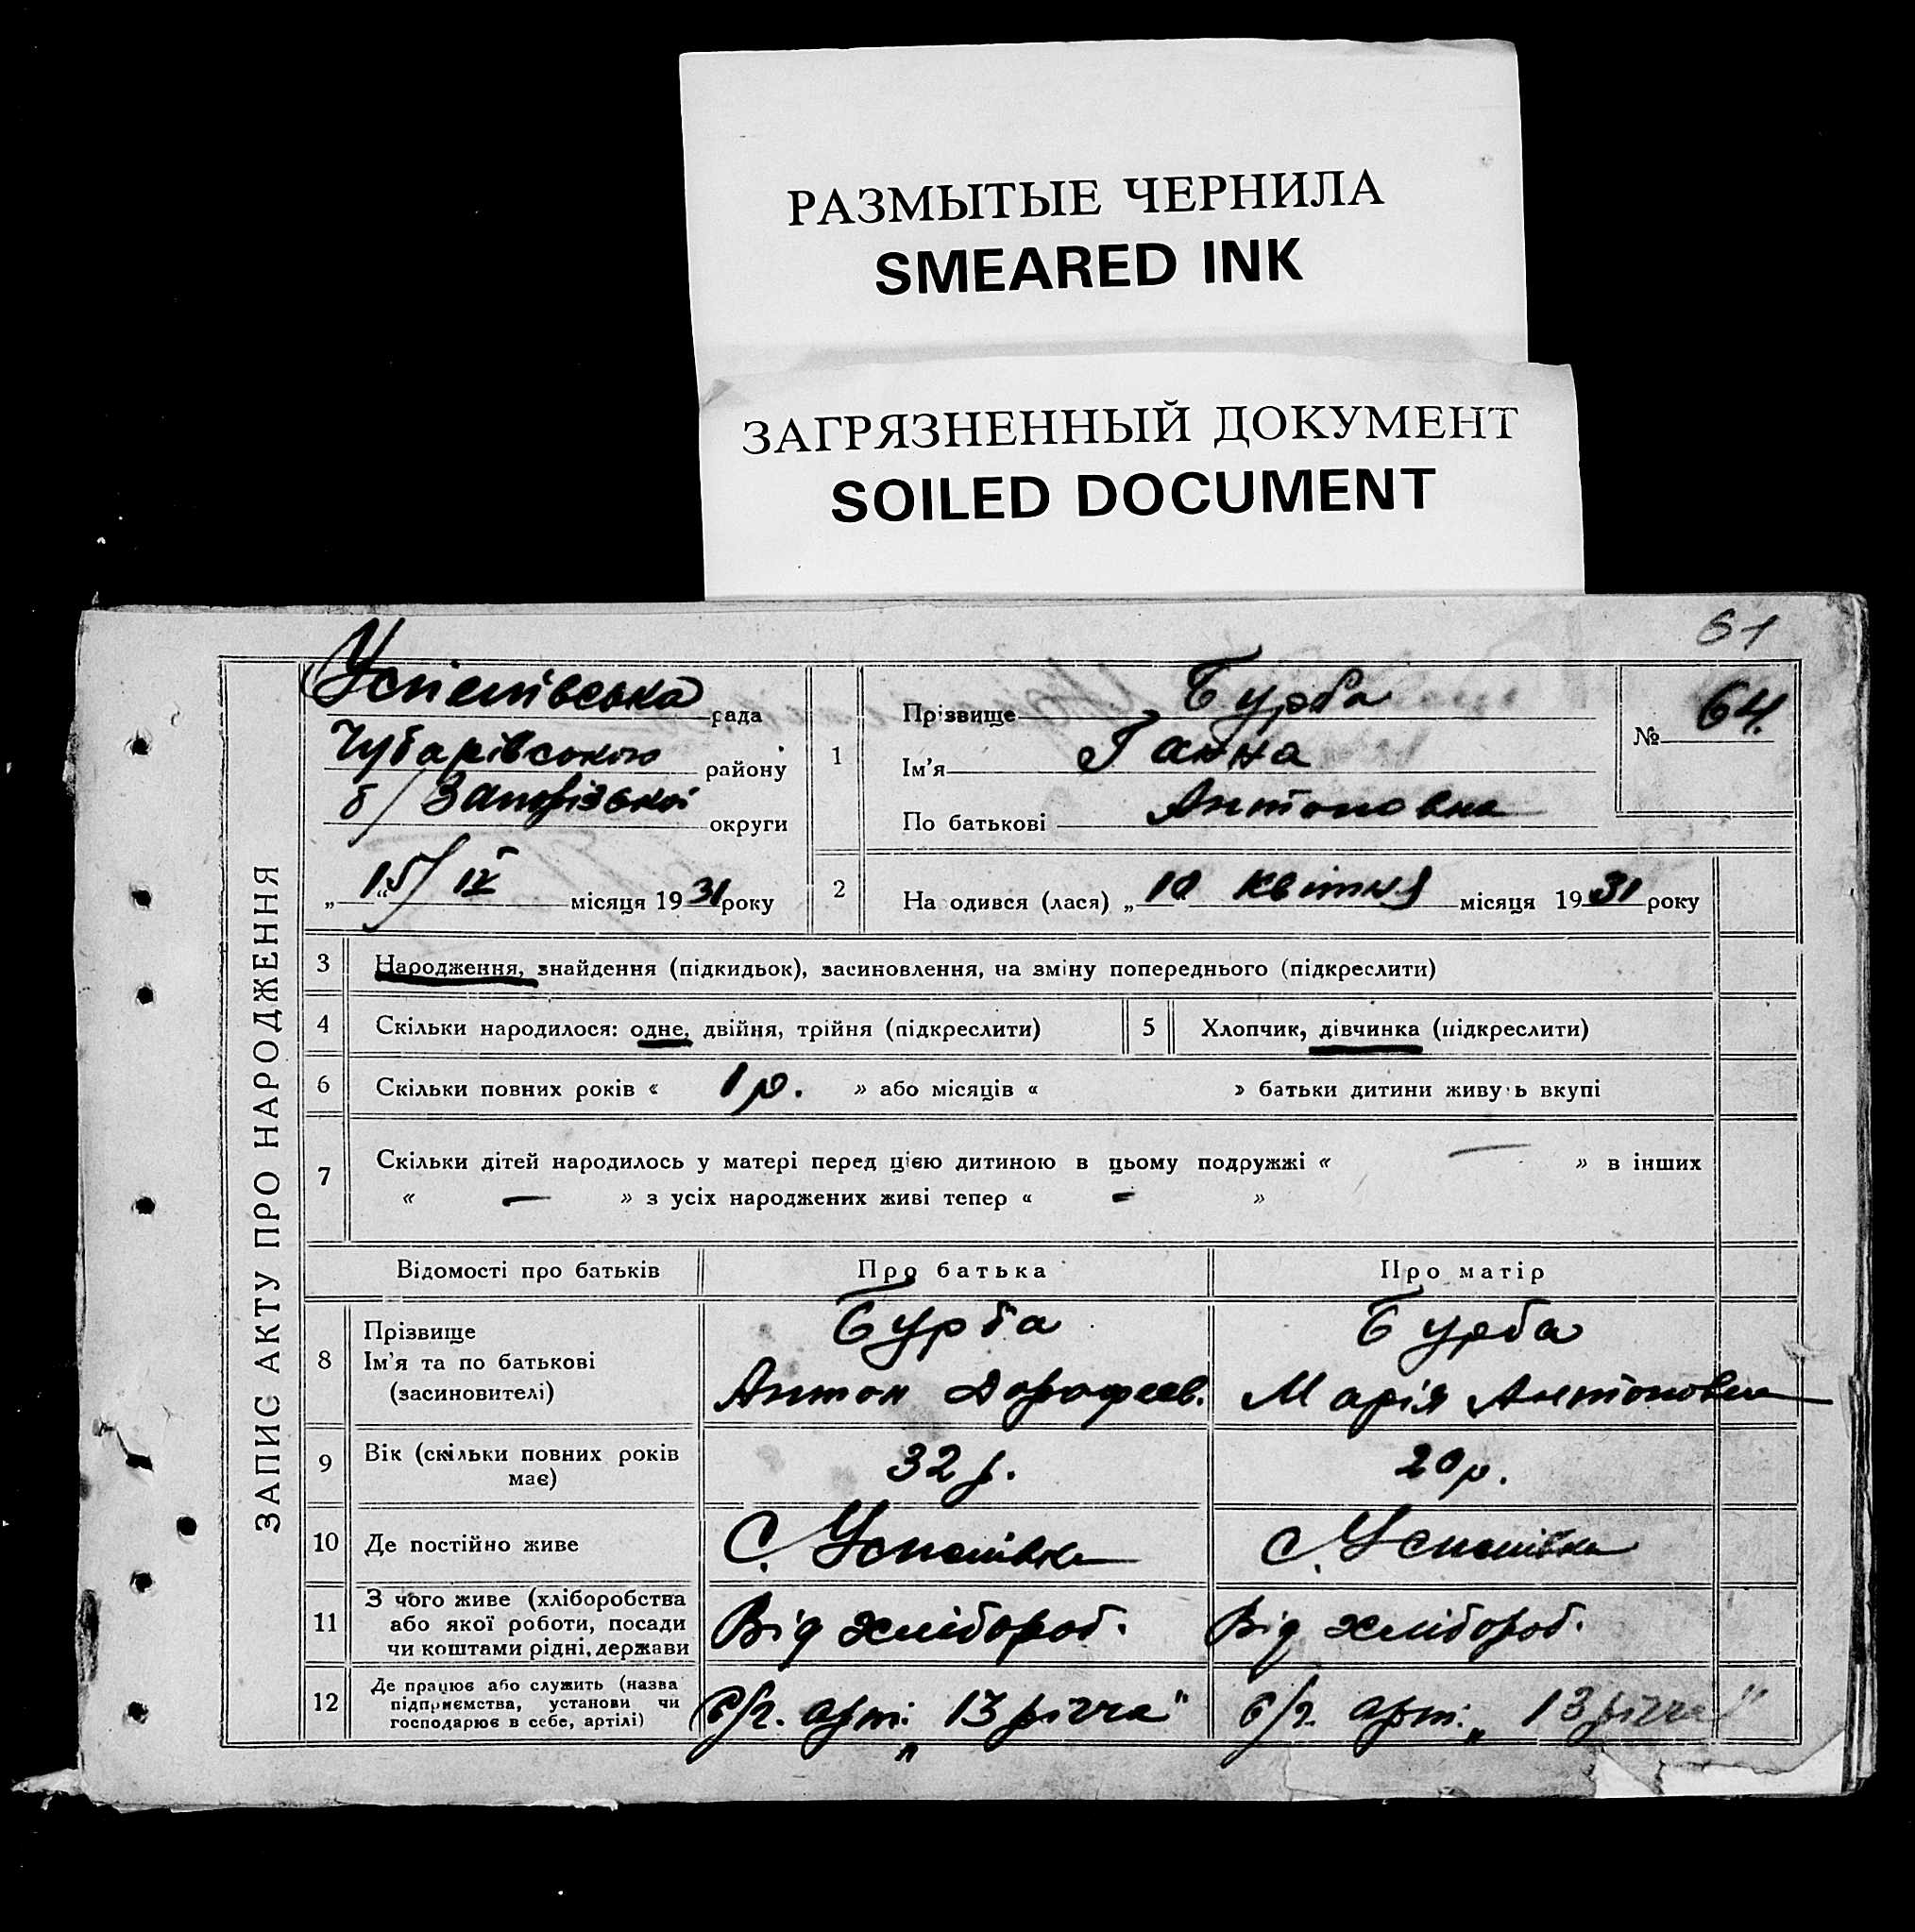 РАЗМЫТЫЕ ЧЕРНИЛА
SMEARED INK
ЗАГРЯЗНЕННЫЙ ДОКУМЕНТ
SOILED DOCUMENT
61
ЗАПИС АКТУ ПРО НАРОДЖЕННЯ
Успенівська рада
Чубарівського району
б/ Запорізької округи
„15/“ IV місяця 1931 року
1
Прізвище Бурба
Ім'я Ганна
По батькові Антоновна
№ 64.
2 На одився (лася) „10 квітня місяця 1931 року
3 Народження, знайдення (підкидьок), засиновлення, на зміну попереднього (підкреслити)
4 Скільки народилося: одне, двійня, трійня (підкреслити) 5 Хлопчик, дівчинка (підкреслити)
6 Скільки повних років « 1 р. » або місяців « » батьки дитини живу ь вкупі
7 Скільки дітей народилось у матері перед цією дитиною в цьому подружжі « — » в інших
« — » з усіх народжених живі тепер « - »
Відомості про батьків Про батька Про матір
8 Прізвище Бурба Бурба
Ім'я та по батькові
(засиновителі) Антон Дорофеев. Марія Антоновна
9 Вік (скільки повних років 32 р. 20 р.
має)
10 Де постійно живе С. Успенівка С. Успенівка
11 З чого живе (хліборобства
або якої роботи, посади Від хлібороб. Від хлібороб.
чи коштами рідні, держави
12 Де працює або служить (назва
підприємства, установи чи с/г. арт. „13 річча" с/г. арт. „13 річча"
господарює в себе, артілі)